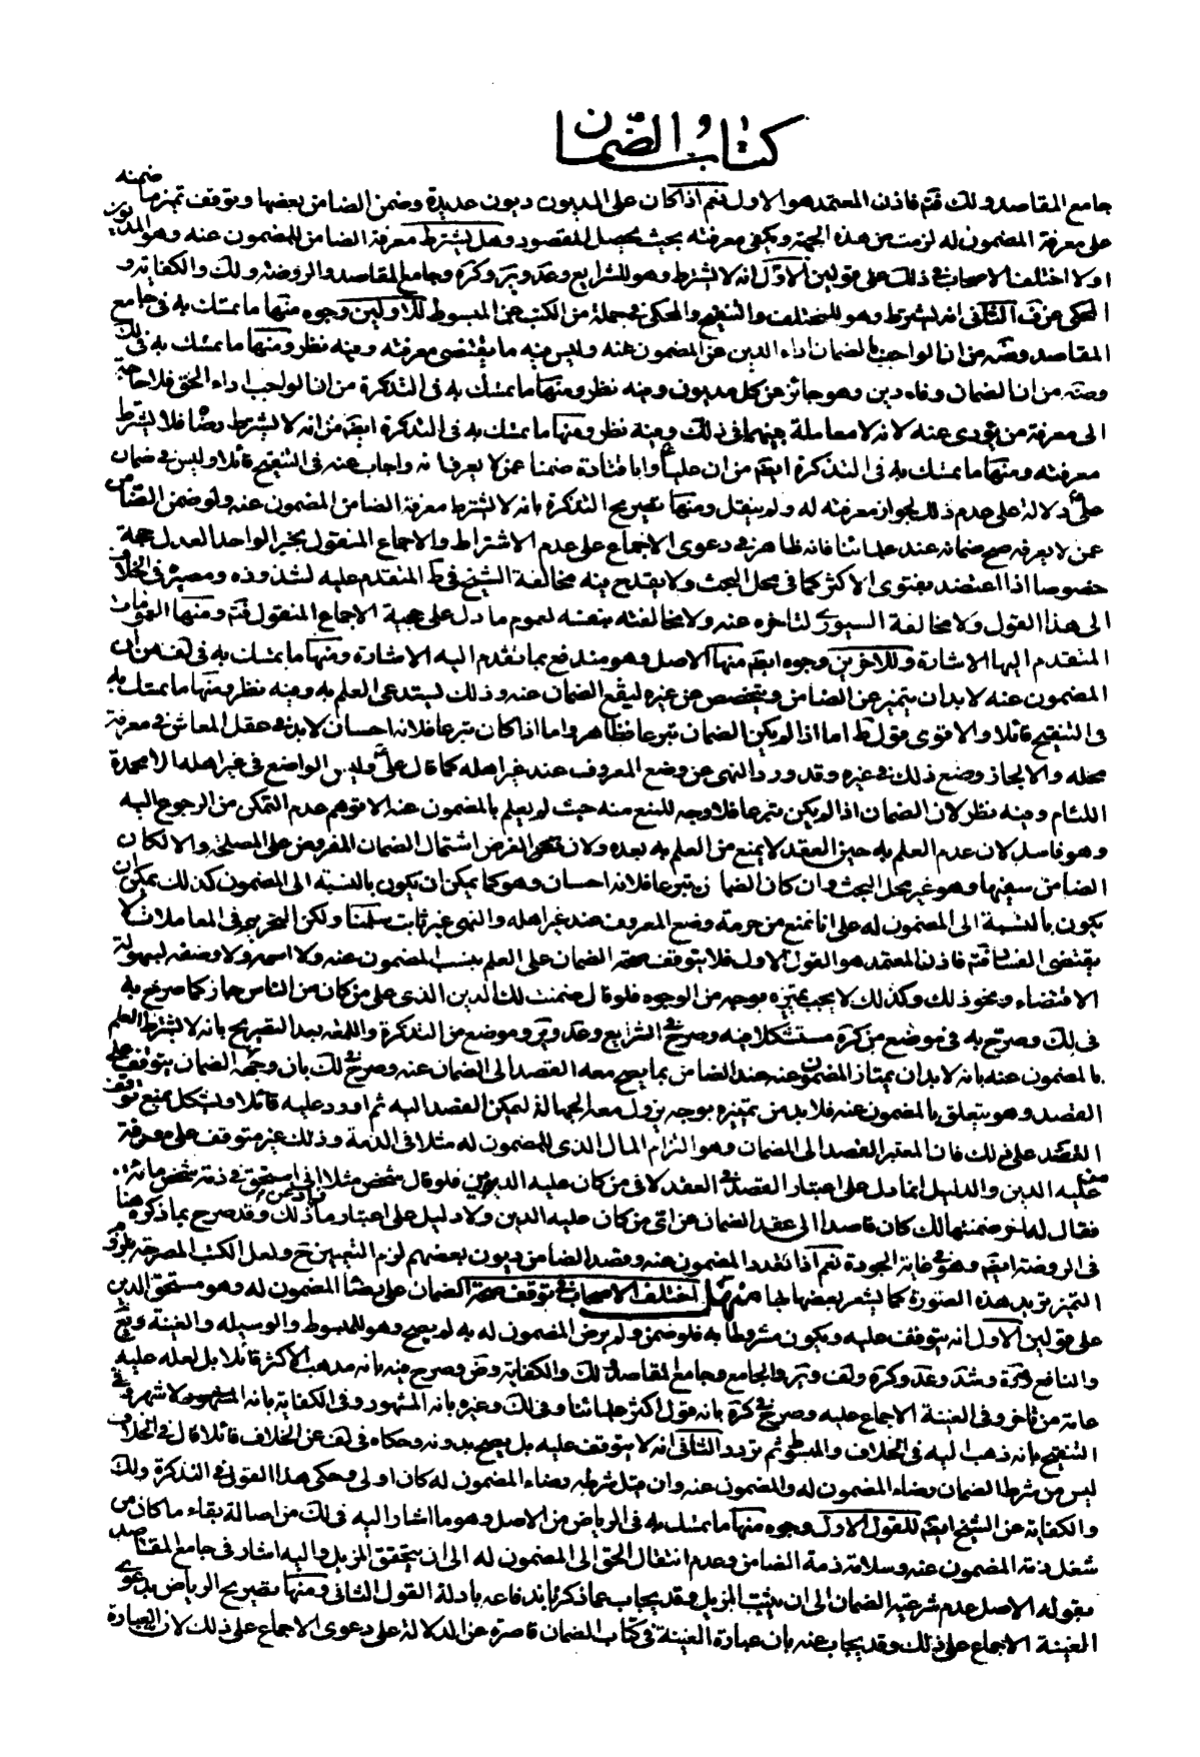 كتاب الضمان
جامع المقاصد ولك فتم فاذن المعتمد هو الاول نعم اذا كان على المديون ديون عديدة وضمن الضامن بعضها وتوقف تميز ما ضمنه
على معرفة المضمون له لزمت من هذه الجهة ويكفى معرفته بحيث يحصل المقصود وهل يشترط معرفة الضامن للمضمون عنه وهو المديون
اولا اختلف الاصحاب فى ذلك على قولين الاول انه لا يشترط وهو للشرايع وعد وير وكرة وجامع المقاصد والروضة ولك والكفاية و
المحكى عن ف الثانى انه يشترط وهو للمختلف والتنقيح والمحكى فى جملة من الكتب عن المبسوط للاولين وجوه منها ما تمسك به فى جامع
المقاصد وضه من ان الواجب بالضمان اداء الدين عن المضمون عنه وليس فيه ما يقتضى معرفته وفيه نظر ومنها ما تمسك به فى لك
وضه من ان الضمان وفاء دين وهو جائز عن كل مديون وفيه نظر ومنها ما تمسك به فى التذكرة من ان الواجب اداء الحق فلا حاجة
الى معرفة من يؤدى عنه لانه لا معاملة بينهما فى ذلك وفيه نظر ومنها ما تمسك به فى التذكرة ايضا من انه لا يشترط رضاه فلا يشترط
معرفته ومنها ما تمسك به فى التذكرة ايضا من ان عليا وابا قتادة ضمنا عمن لا يعرفانه واجاب عنه فى التنقيح قائلا وليس فى ضمان
على دلالة على عدم ذلك لجواز معرفته له ولم ينقل ومنها تصريح التذكرة بانه لا يشترط معرفة الضامن المضمون عنه ولو ضمن الضامن
عن لا يعرفه صح ضمانه عند علمائنا فانه ظاهر فى دعوى الاجماع على عدم الاشتراط والاجماع المنقول بخبر الواحد العدل حجة
خصوصا اذا اعتضد بفتوى الاكثر كما فى محل البحث ولا يقدح فيه مخالفة الشيخ فى ط المتقدم عليه لشذوذه ومصيره فى الخلاف
الى هذا القول ولا مخالفة السيورى لتاخره عنه ولا مخالفته بنفسه لعموم ما دل على حجية الاجماع المنقول فتم ومنها العمومات
المتقدم اليها الاشارة وللاخرين وجوه ايضا منها الاصل وهو مندفع بما تقدم اليه الاشارة ومنها ما تمسك به فى لف من ان
المضمون عنه لا بد ان يتميز عن الضامن ويتخصص عن غيره ليقع الضمان عنه وذلك يستدعى العلم به وفيه نظر ومنها ما تمسك به
فى التنقيح قائلا والاقوى قول ط اما اذا لم يكن الضمان تبرعا فظاهر واما اذا كان تبرعا فلانه احسان لابد فى عقل المعاش فى معرفة
محله والا لجاز وضع ذلك فى غيره وقد ورد النهى عن وضع المعروف عند غير اهله كما قال على وليس الواضع فى غير اهله الا محمدة
اللئام وفيه نظر لان الضمان اذا لم يكن متبرعا فلا وجه للمنع منه حيث لم يعلم بالمضمون عنه الا توهم عدم التمكن من الرجوع اليه
وهو فاسد لان عدم العلم به حين العقد لا يمنع من العلم به بعده ولان الفرض اشتمال الضمان المفروض على المصلحة والا لكان
الضامن سفيها وهو غير محل البحث وان كان الضمان تبرعا فلانه احسان وهو كما يمكن ان يكون بالنسبة الى المضمون كذلك يمكن ان
يكون بالنسبة الى المضمون له على انا نمنع من حرمة وضع المعروف عند غير اهله والنهى غير ثابت سلمنا ولكن التحريم فى المعاملات لا
يقتضى الفساد فتم فاذن المعتمد هو القول الاول فلا يتوقف صحة الضمان على العلم بنسب المضمون عنه ولا اسمه ولا وصفه لسهولة
الاقتضاء ونحو ذلك وكذلك لا يجب تميزه بوجه من الوجوه فلو قال ضمنت لك الدين الذى على من كان من الناس جاز كما صرح به
فى لك وصرح به فى موضع من كرة مستشكلا فيه وصرح فى الشرايع وعد وير وموضع من التذكرة واللمعة بعد التصريح بانه لا يشترط العلم
بالمضمون عنه بانه لا بد ان يمتاز المضمون عنه عند الضامن بما يصح معه القصد الى الضمان عنه وصرح فى لك بان وجهه الضمان يتوقف على
القصد وهو يتعلق بالمضمون عنه فلا بد من تميزه بوجه يزول معه الجهالة ليمكن القصد اليه ثم اورد عليه قائلا ويشكل بمنع توقف
القصد على ذلك فان المعتبر القصد الى الضمان وهو التزام المال الذى للمضمون له مثلا فى الذمة وذلك غير متوقف على معرفة
من عليه الدين والدليل انما دل على اعتبار القصد فى العقد لا فى من كان عليه الدين فلو قال شخص مثلا انى استحق فى ذمة شخص مائة
فقال له اخر ضمنتها لك كان قاصدا الى عقد الضمان عن اى من كان عليه الدين ولا دليل على اعتبار ما زاد عن ذلك وقد صرح بما ذكره هنا
فى الروضة ايضا وهو فى غاية الجودة نعم اذا تعدد المضمون عنه وقصد الضامن ديون بعضهم لزم التعيين ح ولعل الكتب المصرحة بلزوم
التميز تريد هذه الصورة كما يشعر بعضها لها منهل اختلف الاصحاب فى توقف صحة الضمان على رضا المضمون له وهو مستحق الدين
على قولين الاول انه يتوقف عليه ويكون مشروطا به فلو ضمن ولم يرض المضمون له به لم يصح وهو للمبسوط والوسيلة والغنية ويع
والنافع وشد وعد وكرة ولف وير والجامع وجامع المقاصد ولك والكفاية وض وصرح فيه بانه مذهب الاكثر قائلا بل لعله عليه
عامة من تاخر وفى الغنية الاجماع عليه وصرح فى كرة بانه قول اكثر علمائنا وفى لك وغيره بانه المشهور وفى الكفاية بانه المشهور لا شهر وفى
التنقيح بانه ذهب اليه فى الخلاف والمبسوط ثم تردد الثانى انه لا يتوقف عليه بل يصح بدونه وحكاه فى لف عن الخلاف قائلا قال فى الخلاف
ليس من شرط الضمان رضاء المضمون له والمضمون عنه وان قيل شرطه رضاء المضمون له كان اولى وحكى هذا القول فى التذكرة ولك
والكفاية عن الشيخ ايضا للقول الاول وجوه منها ما تمسك به فى الرياض من الاصل وهو ما اشار اليه فى لك من اصالة بقاء ما كان من
شغل ذمة المضمون عنه وسلامة ذمة الضامن وعدم انتقال الحق الى المضمون له الى ان يتحقق المزيل واليه اشار فى جامع المقاصد
بقوله الاصل عدم شرعية الضمان الى ان يثبت المزيل وقد يجاب عما ذكر باندفاعه بادلة القول الثانى ومنها تصريح الرياض بدعوى
الغنية الاجماع على ذلك وقد يجاب عنه بان عبارة الغنية فى كتاب الضمان قاصرة عن الدلالة على دعوى الاجماع على ذلك لان العبارة